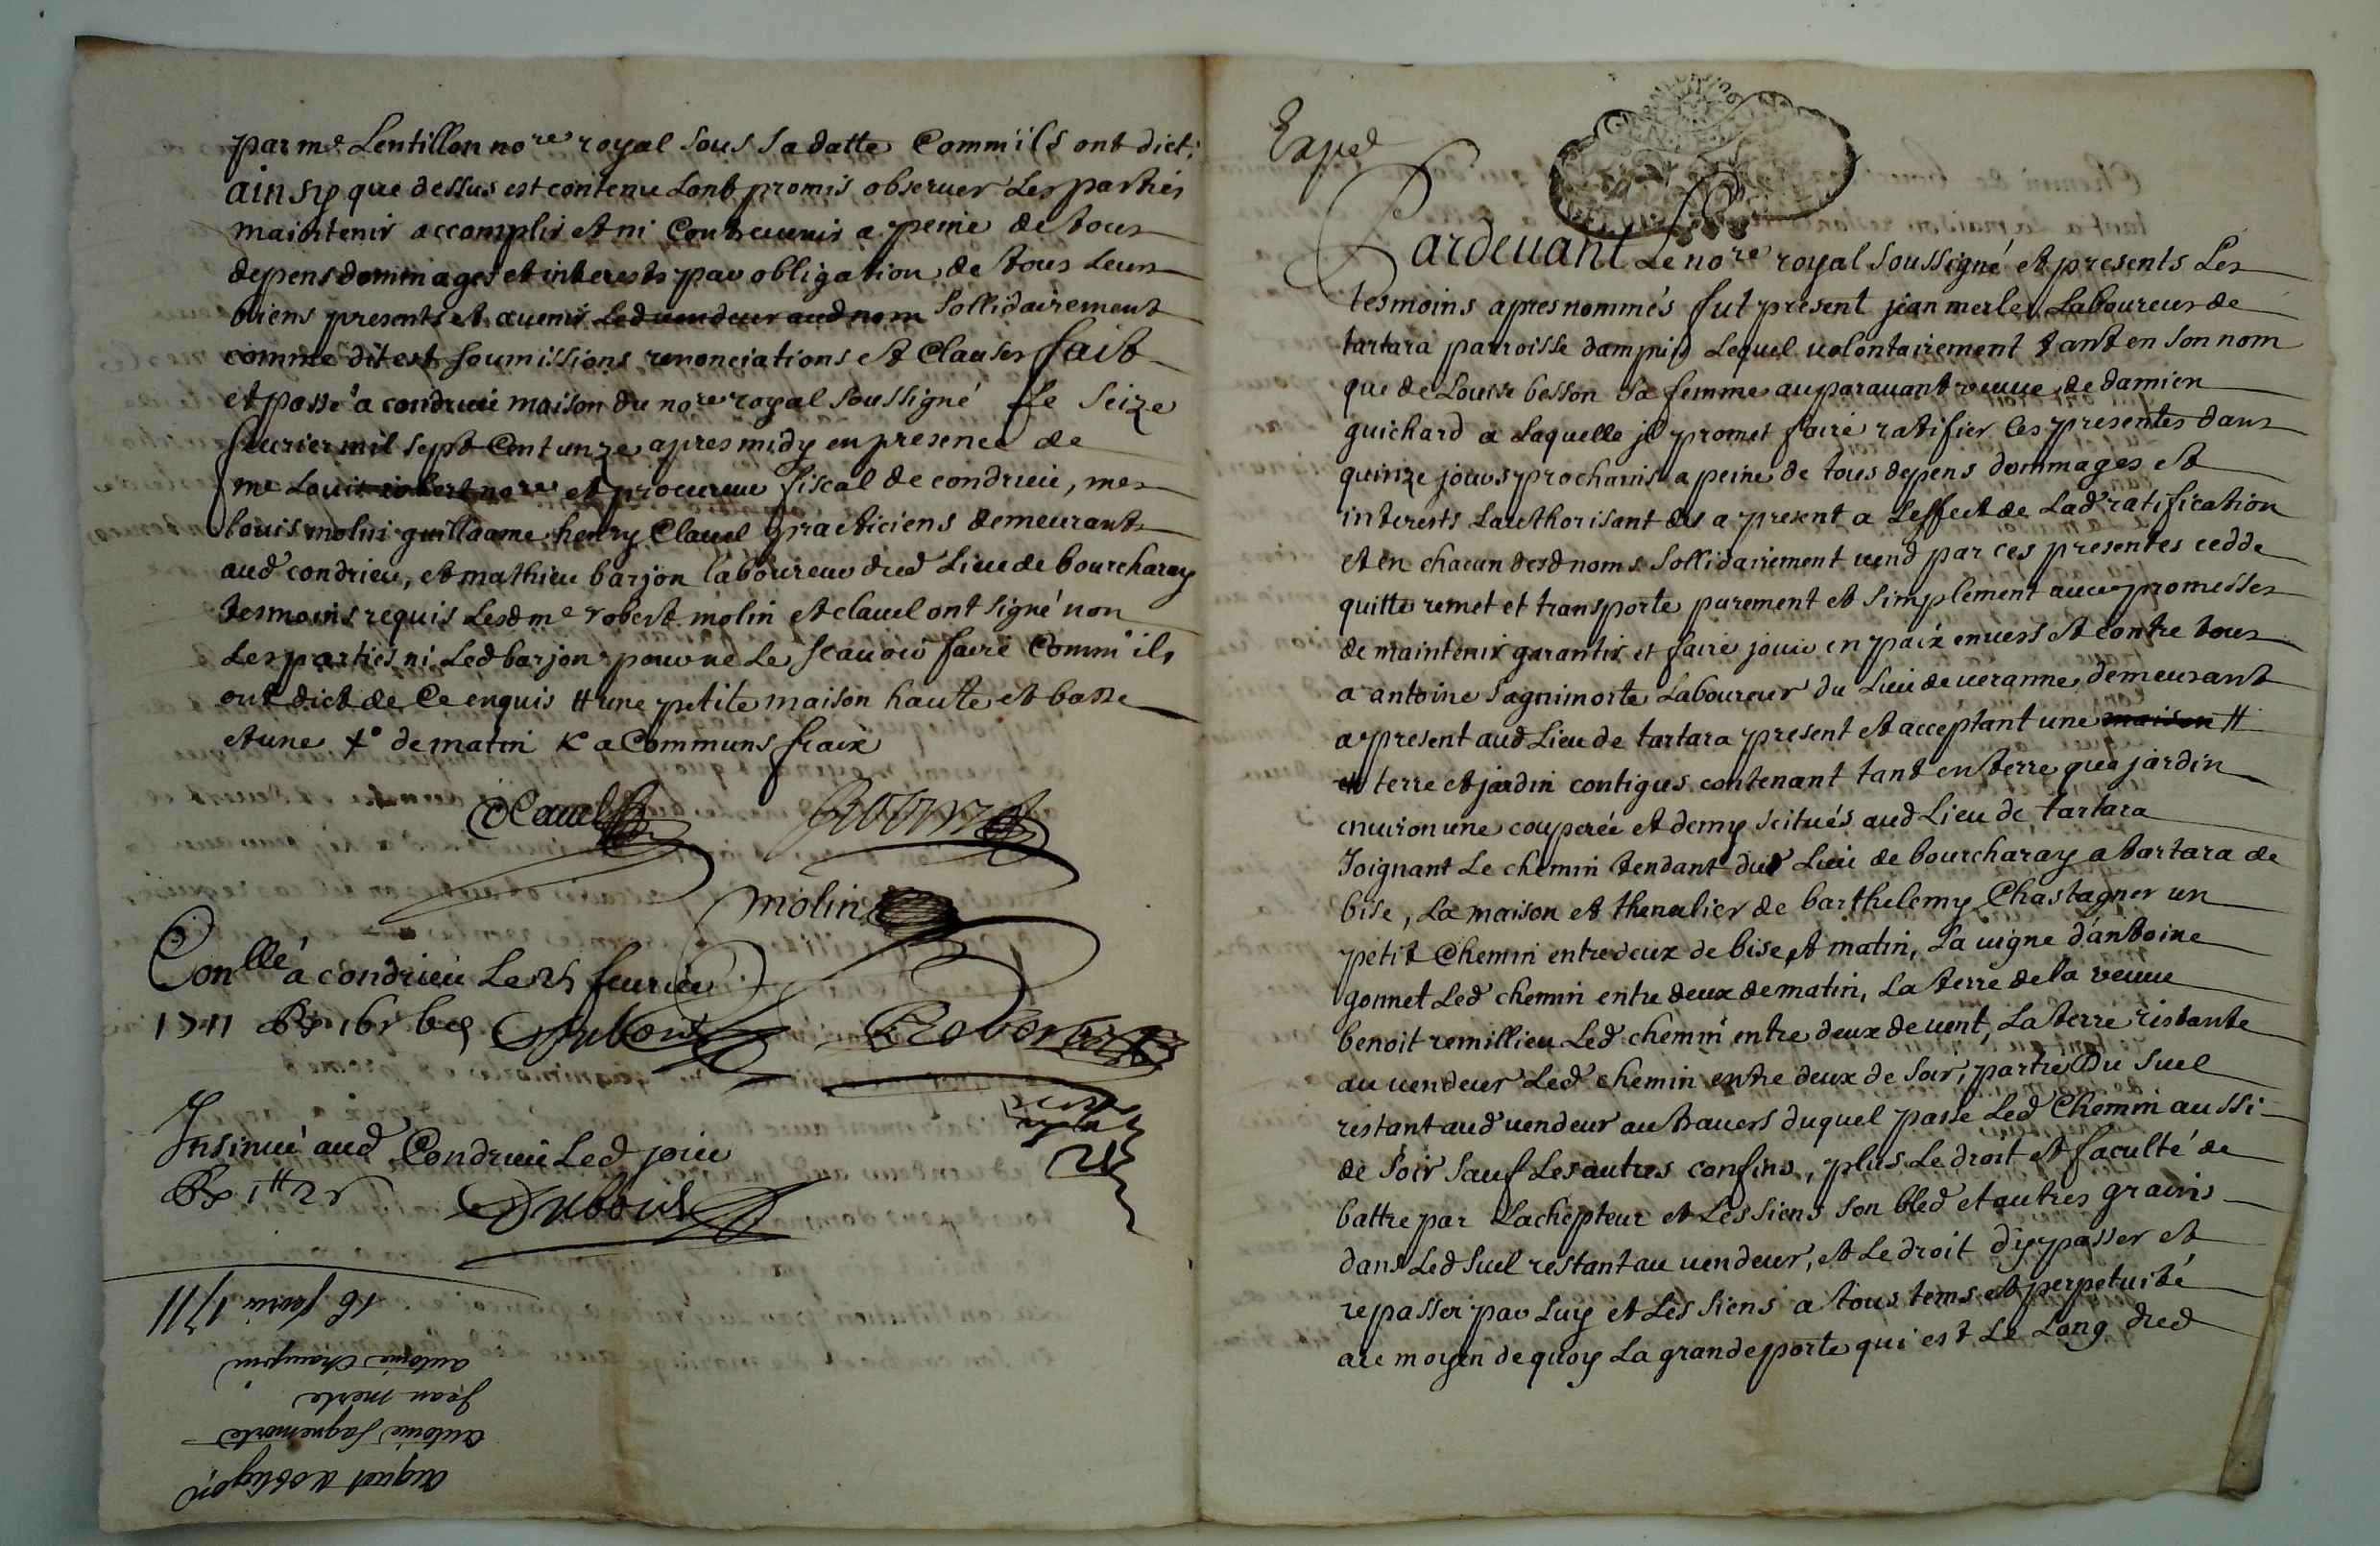 par me Lentillon nore royal sous sa datte Comm'ils ont dict;
ainsy que dessus est contenu Lont promis observer Les parties
maintenir accomplir et ni Contrevenir a peine de tous
depens dommages et interests par obligation de tous Leurs
biens presents et avenir Led vendeur aud nom sollidairement
comme dit est soumissions renonciations et Clauses fait
et passé a condrieu maison du nore royal soussigné Le seize
feurier mil sept Cent unze apres midy en presence de
me Louis robert nore et procureur fiscal de condrieu, mes
louis molin guillaume henry Clauel practiciens demeurants
aud condrieu, et mathieu barjon laboureur dud Lieu de bourcharay
tesmoins requis Lesd me robert molin et clauel ont signé non
Les parties ni Led barjon pour ne Le scauoir faire Comm'ils
ont dict de Ce enquis # une petite maison haute et basse
et une de matin a Communs fraix
Clauel
molin
Conllé a condrieu Le feurier
1711 Dubout Robert
Insinué aud Condrieu Led jour
Dubout
16 feurier 1711
antoine
Jean merle
antoine Sagnemorte
aquet
Exped
Pardeuant Le nore royal soussigné et presents Les
tesmoins apres nommés fut present jean merle Laboureur de
tartara parroisse dampuis Lequel volontairement tant en son nom
que de Louise besson sa femme auparauant veuue de damien
guichard a Laquelle jl promet faire ratifier les presentes dans
quinze jours prochains a peine de tous depens dommages et
interests Lauthorisant des a present a Leffect de Lad ratification
et en chacun desd noms sollidairement vend par ces presentes cedde
quitte remet et transporte purement et simplement auec promesses
de maintenir garantir et faire jouir en paix enuers et contre tous
a antoine Sagnimorte Laboureur du Lieu de veranne demeurant
a present aud Lieu de tartara present et acceptant une maison #
et terre et jardin contigus contenant tant en terre que jardin
enuiron une couperée et demy scitués aud Lieu de tartara
Joignant Le chemin tendant dud Lieu de bourcharay a tartara de
bise, La maison et thenalier de barthelemy Chastagner un
petit Chemin entredeux de bise et matin, La vigne d'antoine
gonnet Led chemin entre deux de matin, La terre de la veuue
benoit remillieu Led chemin entre deux de uent, La terre restante
au vendeur Led chemin entre deux de soir, partie Du suel
restant aud vendeur au trauers duquel passe Led Chemin aussi
de soir sauf Les autres confins, plus Le droit et faculté de
battre par Lachepteur et Les siens son bled et autres grains
dans Led suel restant au vendeur, et Le droit d'y passer et
repasser par Luy et Les siens a tous tems et perpetuité
au moyen de quoy La grande porte qui est Le Long dud